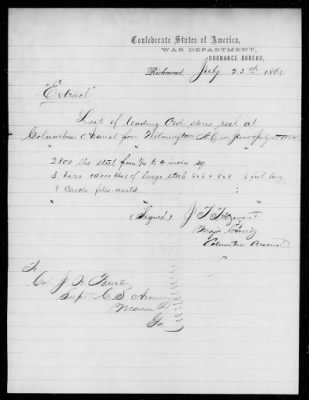 Confederate States of America,
WAR DEPARTMENT,
ORDNANCE BUREAU,
Richmond, July 23rd 186
"Extract"
List of leading Ord. stores recd at
Columbia Arsenal from Wilmington N.C. in
2800 lbs steel from to 4 inches sq
3 bars lbs of large steel 6x6 8x8 6 feet long
8 Casks files asstd
(Signed) J T Trezevant
Major Comdg
Columbia Arsenal
To
Col J H Burton
Supt C.S. Armory
Macon
Ga